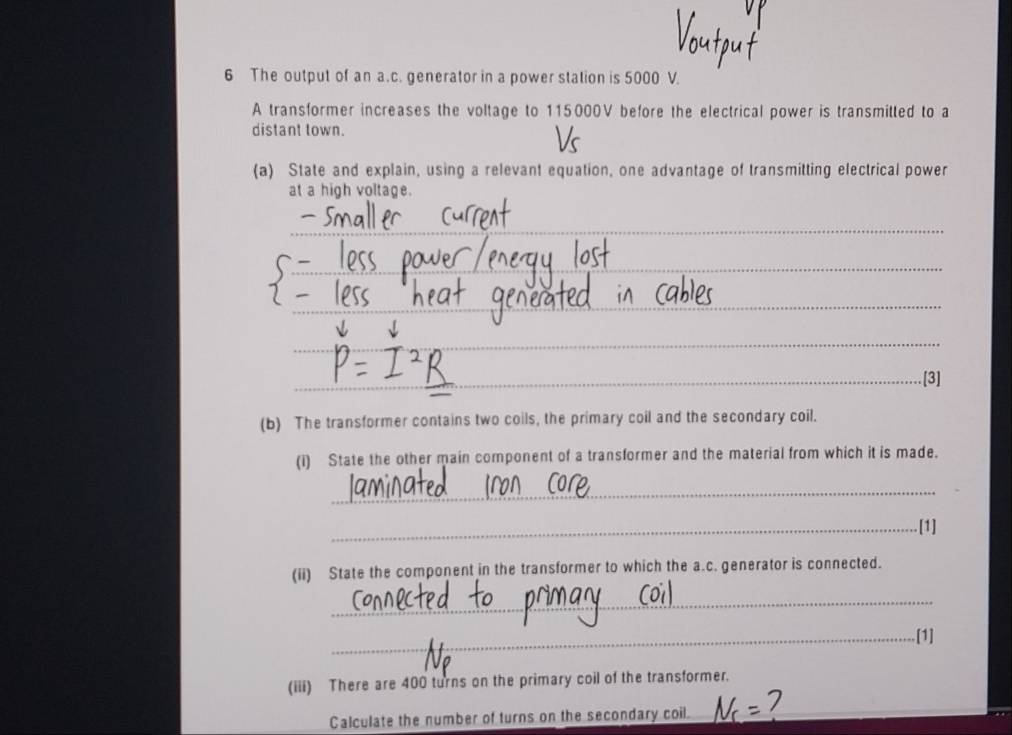 Vp
Voutput
6 The output of an a.c. generator in a power station is 5000 V.
A transformer increases the voltage to 115000V before the electrical power is transmitted to a
distant town.
Vs
(a) State and explain, using a relevant equation, one advantage of transmitting electrical power
at a high voltage.
- smaller current
- less power/energy lost
- less heat generated in cables
↓ ↓
P = I²R
[3]
(b) The transformer contains two coils, the primary coil and the secondary coil.
(i) State the other main component of a transformer and the material from which it is made.
laminated iron core
[1]
(ii) State the component in the transformer to which the a.c. generator is connected.
connected to primary coil
[1]
Np
(iii) There are 400 turns on the primary coil of the transformer.
Calculate the number of turns on the secondary coil. Ns = ?